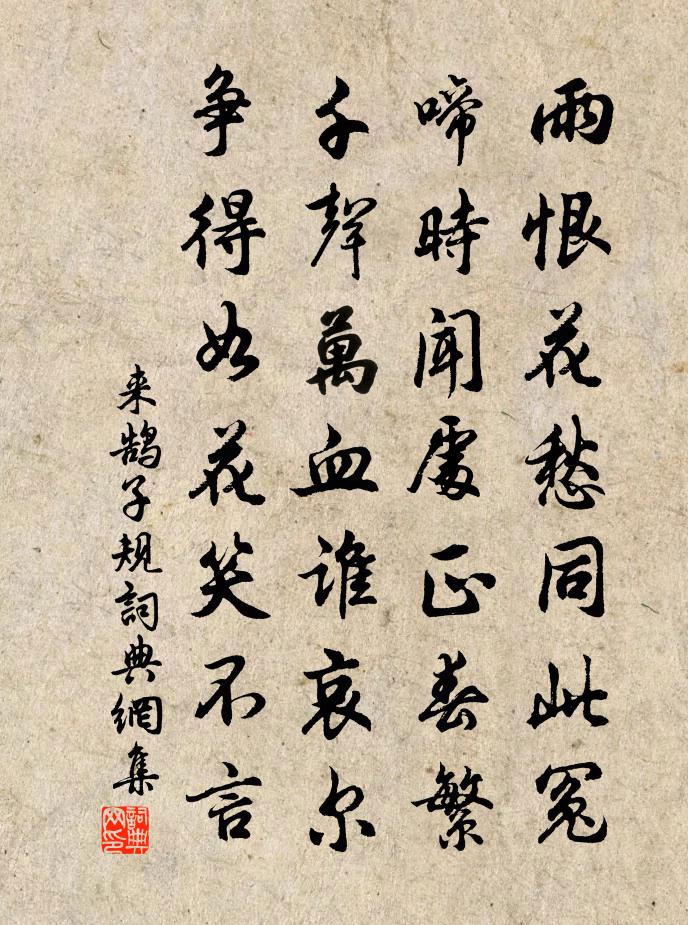 雨恨花愁同此冤
啼時聞處正春繁
千聲萬血誰哀尔
争得如花笑不言
来鹄子規詞典網集
詞典网印